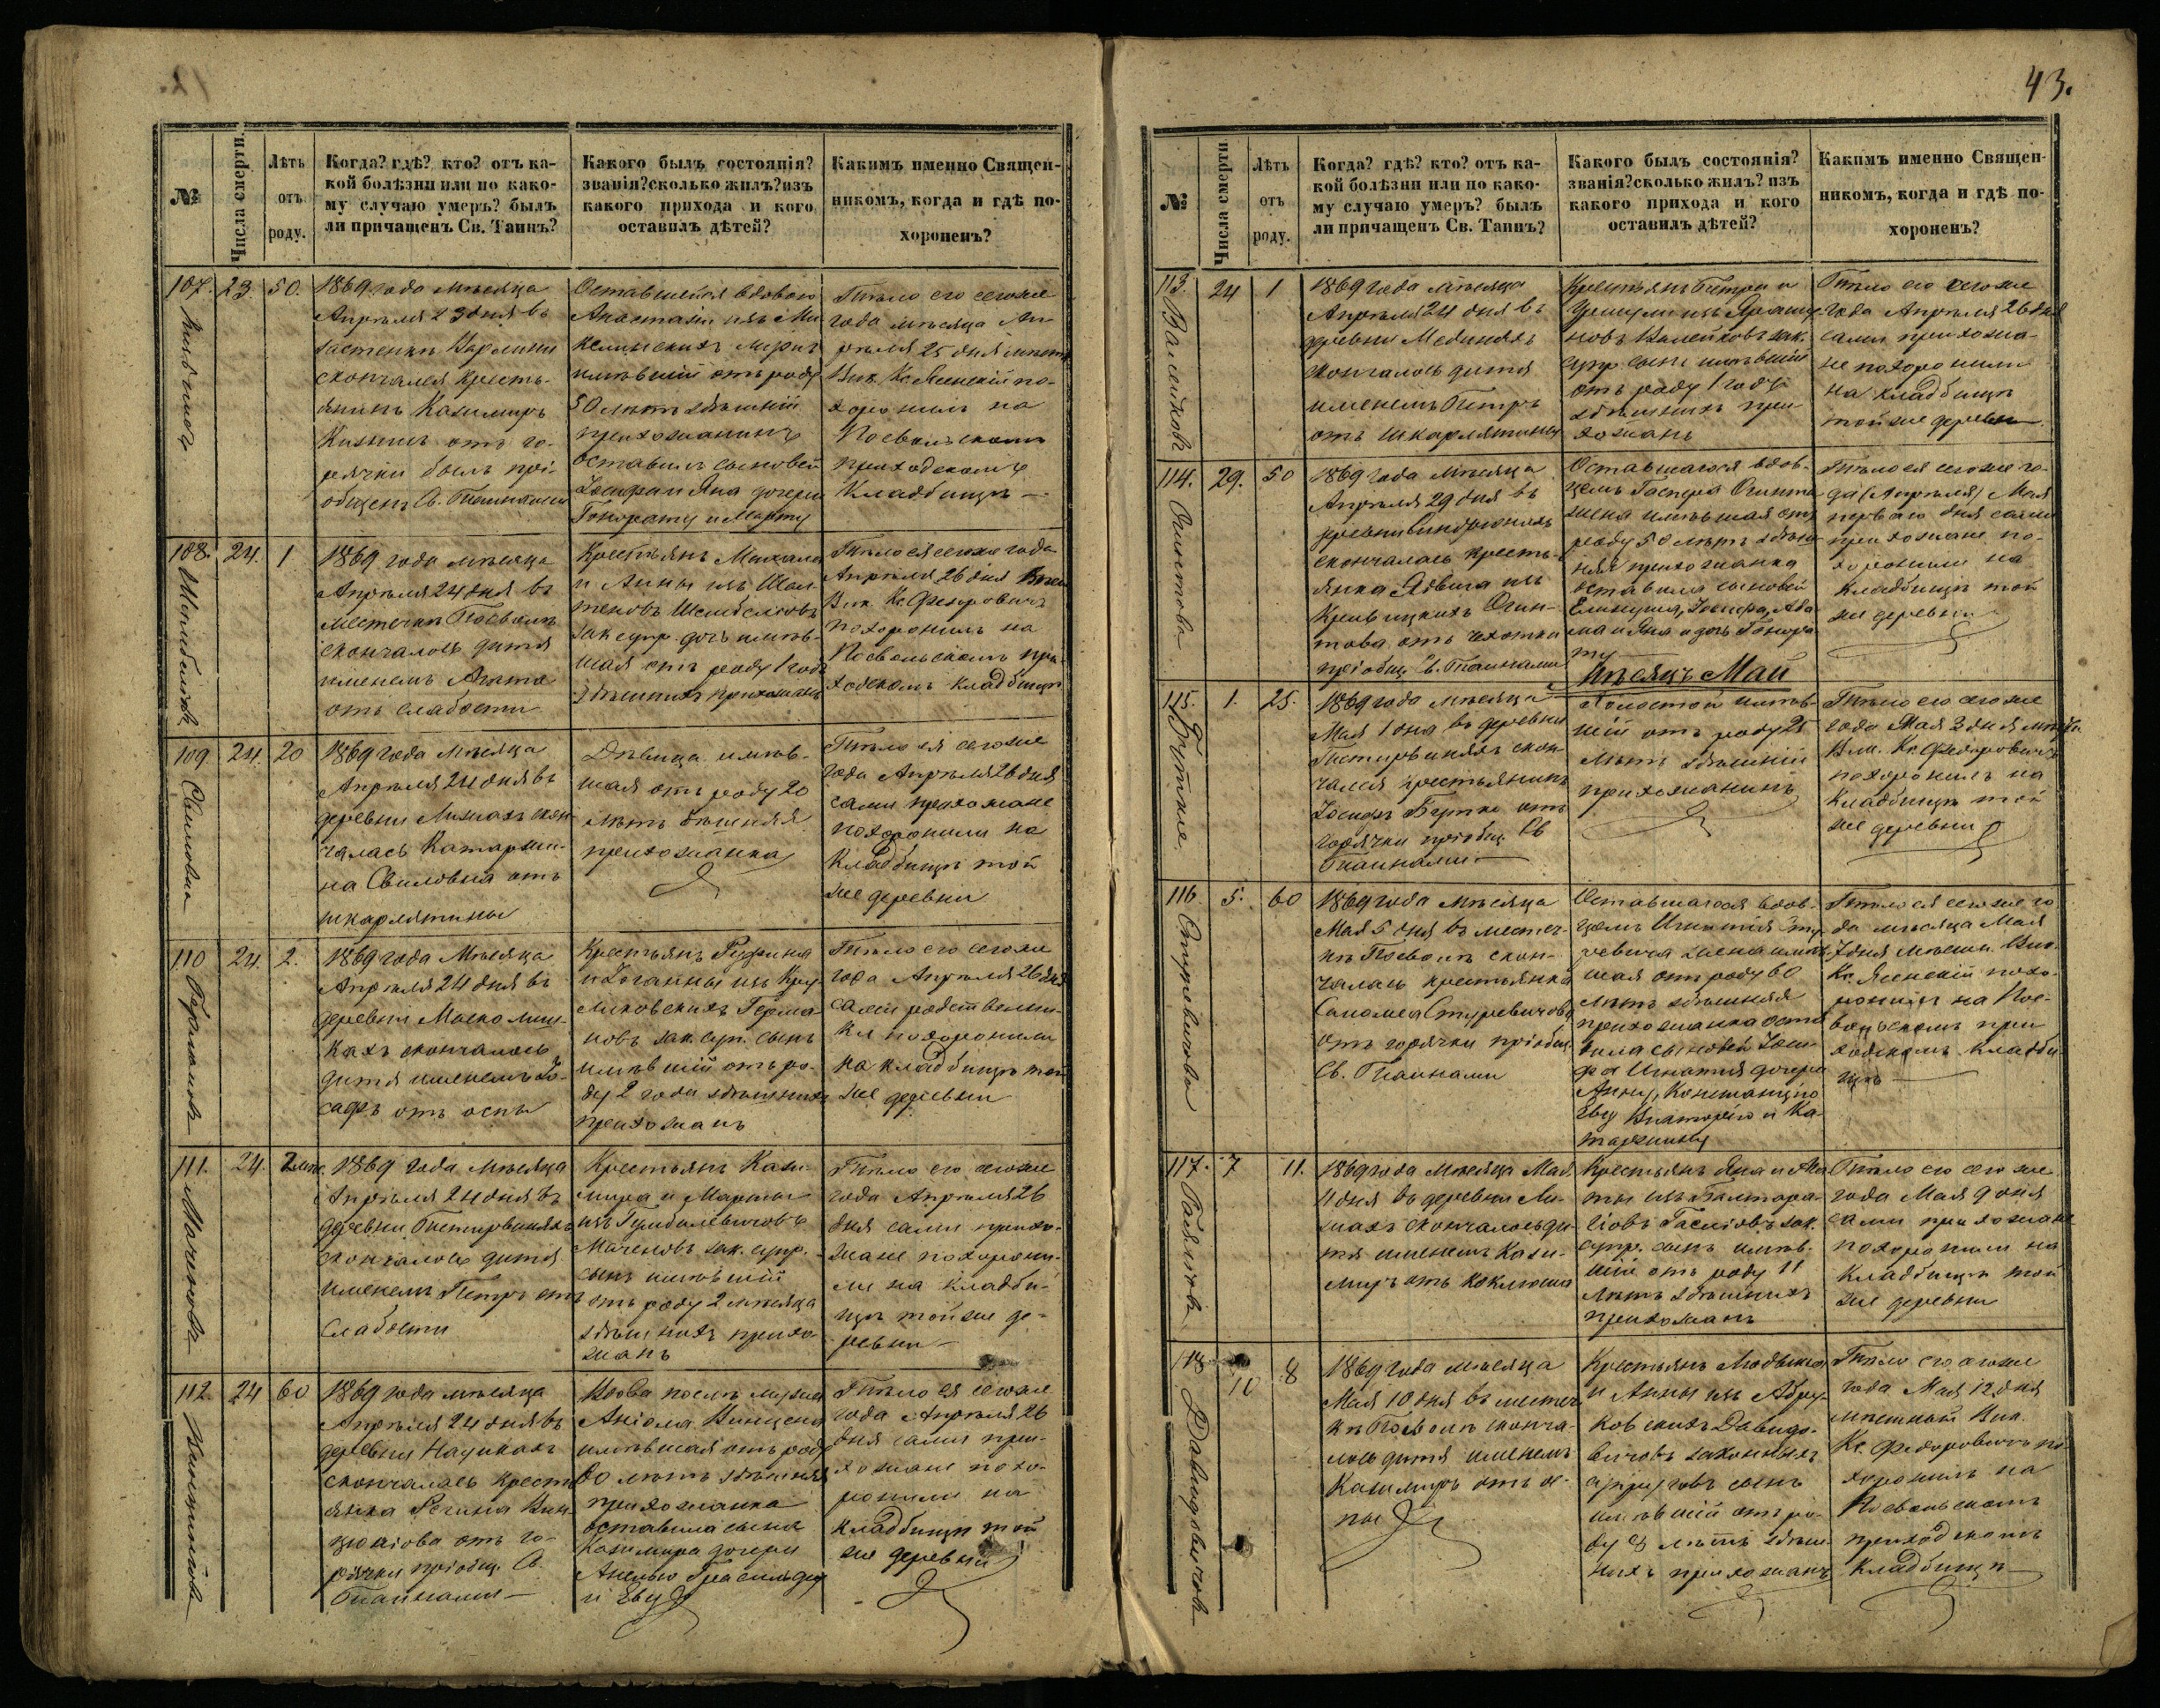 43.
№
Числа смерти.
Лѣтъ
отъ
роду.
Когда? гдѣ? кто? отъ ка-
кой болѣзни или по како-
му случаю умеръ? былъ
ли причащенъ Св. Таинъ?
Какого былъ состоянія?
званія? сколько жилъ? изъ
какого прихода и кого
оставилъ дѣтей?
Какимъ именно Священ-
никомъ, когда и гдѣ по-
хороненъ?
107.
23.
50.
1869 года мѣсяца
Апрѣля 23 дня въ
скончался кресть-
янинъ Казимиръ
отъ го-
рячки былъ прі-
общенъ Св. Тайнами
Оставшейся вдовою
Анастазіи изъ Ми
мужъ
имѣвшій отъ роду
50 лѣтъ здѣшній
прихожанинъ
оставилъ сыновей
Іосифа и Яна дочери
Гонорату и Марту
Тѣло его сего же
года мѣсяца Ап
рѣля 25 дня мѣстн
Вик. Кс. Ясенскій по-
хоронилъ на
Посвольскомъ
приходскомъ
Кладбищѣ —
108.
24.
1.
1869 года мѣсяца
Апрѣля 24 дня въ
местечкѣ Посволѣ
скончалось дитя
именемъ Агата
отъ слабости
Крестьянъ Михала
и Анны изъ
зак супр. дочь имѣв-
шая отъ роду 1 годъ
здѣшнихъ прихожанъ
Тѣло ея сего же года
Апрѣля 26 дня
Вик. Кс. Федоровичъ
похоронилъ на
Посвольскомъ при-
ходскомъ кладбищѣ
109
Свиловна
24.
20
1869 года мѣсяца
Апрѣля 24 дня въ
деревни скон
чалась Катаржи-
на Свиловна отъ
шкарлятины
Дѣвица имѣв-
шая отъ роду 20
лѣтъ здѣшняя
прихожанка
Тѣло ея сего же
года Апрѣля 26 дня
сами прихожане
похоронили на
Кладбищѣ той
же деревни
110
24.
2.
1869 года Мѣсяца
Апрѣля 24 дня въ
деревни
скончалось
дитя именемъ Іо-
сафъ отъ оспы
Крестьянъ
и Іоганны изъ
зак. супр. сынъ
имѣвшій отъ ро-
ду 2 года здѣшнихъ
прихожанъ
Тѣло его сего же
года Апрѣля 26 дня
сами родственни-
ки похоронили
на кладбищѣ той
же деревни
111.
24.
2 мѣс
1869 года мѣсяца
Апрѣля 24 дня въ
деревни
скончалось дитя
именемъ Петръ отъ
слабости
Крестьянъ Кази-
мира и Марты
изъ
зак. супр.
сынъ имѣвшій
отъ роду 2 мѣсяца
здѣшнихъ прихо
жанъ
Тѣло его сего же
года Апрѣля 26
дня сами прихо-
жане похорони-
ли на кладби-
щѣ той же де-
ревни —
112.
24
60
1869 года мѣсяца
Апрѣля 24 дня въ
деревни
скончалась кресть
янка Регина
отъ го-
рячки пріобщ. Св.
Тайнами —
Вдова послѣ мужа
имѣвшая отъ роду
60 лѣтъ здѣшняя
прихожанка
оставила сына
Казимира дочери
и Еву
Тѣло ея сего же
года Апрѣля 26
дня сами при-
хожане похо-
ронили на
кладбищѣ той
же деревни
№
Числа смерти
Лѣтъ
отъ
роду.
Когда? гдѣ? кто? отъ ка-
кой болѣзни или по како-
му случаю умеръ? былъ
ли причащенъ Св. Таинъ?
Какого былъ состоянія?
званія? сколько жилъ? изъ
какого прихода и кого
оставилъ дѣтей?
Какимъ именно Священ-
никомъ, когда и гдѣ по-
хороненъ?
113.
24
1
1869 года мѣсяца
Апрѣля 24 дня въ
деревни
скончалось дитя
именемъ Петръ
отъ шкарлятины
Крестьянъ Петра и
зак.
супр. сынъ имѣвшій
отъ роду 1 годъ
здѣшнихъ при
хожанъ
Тѣло его сего же
года Апрѣля 26 дня
сами прихожа-
не похоронили
на кладбищѣ
той же деревни
114.
29.
50
1869 года мѣсяца
Апрѣля 29 дня въ
деревни
скончалась кресть-
янка Ядвига изъ
отъ чахотки
пріобщ. Св. Тайнами
Оставшагося вдов-
цемъ Гаспера
жена имѣвшая отъ
роду 50 лѣтъ здѣш-
няя прихожанка
оставила сыновей
Іосифа, Ада
ма и Яна и дочь Гонора
ту
Тѣло ея сего же го-
да (Апрѣля) Мая
перваго дня сами
прихожане по-
хоронили на
кладбищѣ той
же деревни
Мѣсяцъ Май
115.
1.
25.
1869 года мѣсяца
Мая 1 дня въ деревни
скон-
чался крестьянинъ
отъ
горячки пріобщ. Св
Тайнами —
Холостой имѣв-
шій отъ роду 25
лѣтъ здѣшній
прихожанинъ
Тѣло его сего же
года Мая 3 дня мѣстн
Вик. Кс. Федоровичъ
похоронилъ на
Кладбищѣ той
же деревни
116.
5.
60
1869 года мѣсяца
Мая 5 дня въ местеч-
кѣ Посволѣ скон-
чалась крестьянка
отъ горячки пріобщ.
Св. Тайнами
Оставшагося вдов-
цемъ Игнатія
жена имѣв-
шая отъ роду 60
лѣтъ здѣшняя
прихожанка оста
вила сыновей Іоси-
фа Игнатія дочери
Анну, Констанцію
Еву Викторію и Ка-
таржину
Тѣло ея сего же го
да мѣсяца Мая
7 дня мѣстн. Вик.
Кс. Ясенскій похо-
ронилъ на Пос-
вольскомъ при
ходскомъ кладби-
щѣ —
117.
7
11.
1869 года мѣсяца Мая
дня въ деревни
скончалось ди-
тя именемъ Кази-
миръ отъ коклюша
Крестьянъ Яна и Ага
ты изъ
зак.
супр. сынъ имѣв-
шій отъ роду 11
лѣтъ здѣшнихъ
прихожанъ
Тѣло его сего же
года Мая 9 дня
сами прихожане
похоронили на
кладбищѣ той
же деревни
118
Давидовичовъ
10
8
1869 года мѣсяца
Мая 10 дня въ местеч
кѣ Посволѣ сконча-
лось дитя именемъ
Казимиръ отъ ос-
пы
Крестьянъ Людвика
и Анны изъ
Давидо-
вичовъ законныхъ
супруговъ сынъ
имѣвшій отъ ро-
ду 8 лѣтъ здѣш-
нихъ прихожанъ
Тѣло его сего же
года Мая 12 дня
мѣстный Вик.
Кс. Федоровичъ по
хоронилъ на
Посвольскомъ
приходскомъ
кладбищѣ